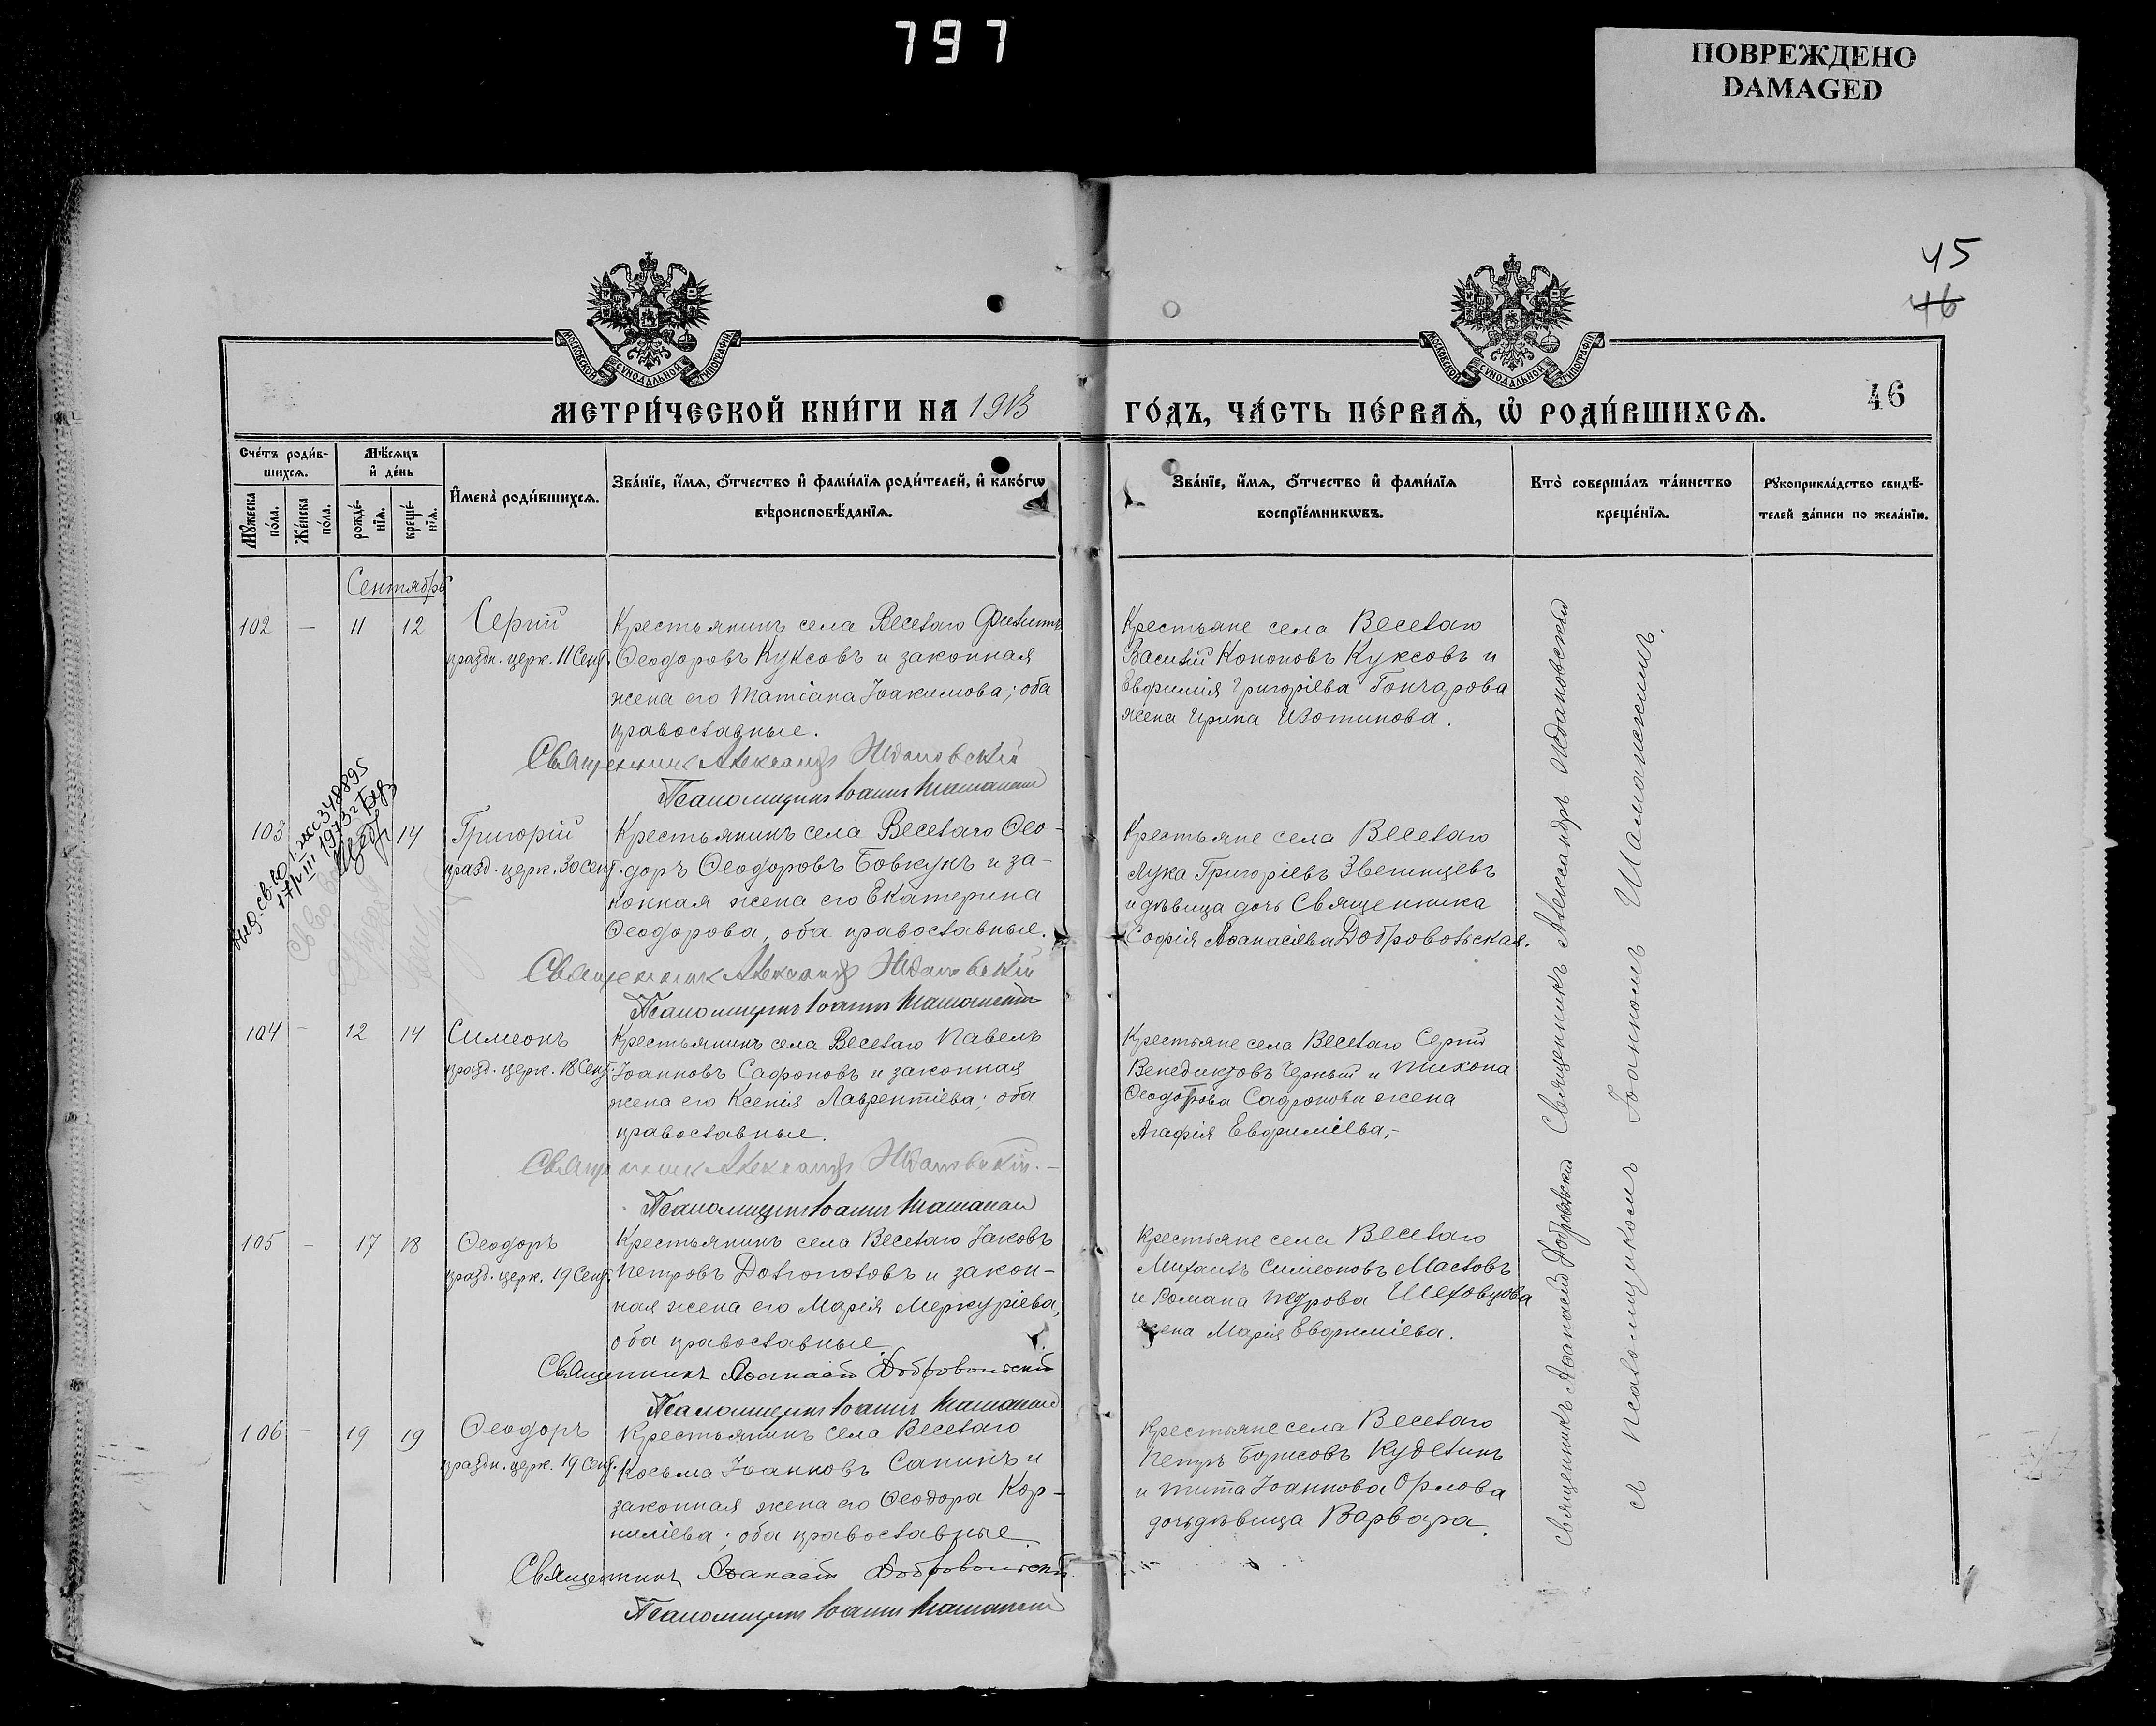 797
ПОВРЕЖДЕНО
DAMAGED
45
46
46
МОСКОВСКОЙ СѴНОДАЛЬНОЙ ТИПОГРАФІИ
МОСКОВСКОЙ СѴНОДАЛЬНОЙ ТИПОГРАФІИ
МЕТРИ́ЧЕСКОЙ КНИ́ГИ НА 1913
ГО́ДЪ, ЧА́СТЬ ПЕ́РВАѦ, Ѡ҆ РОДИ́ВШИХСѦ.
Сче́тъ роди́в-
шихсѧ.
Мꙋ́жеска по́ла.
Же́нска по́ла.
Мѣ́сѧцъ
и҆ де́нь
рожде́-
нїѧ.
креще́-
нїѧ.
И҆мена̀ роди́вшихсѧ.
Зва́нїе, и҆́мѧ, ѻ҆́тчество и҆ фами́лїѧ роди́телей, и҆ како́гѡ
вѣроисповѣ́данїѧ.
Зва́нїе, и҆́мѧ, ѻ҆́тчество и҆ фами́лїѧ
воспрїе́мникѡвъ.
Кто̀ соверша́лъ та́инство
креще́нїѧ.
Рꙋкоприкла́дство свидѣ́-
телей за́писи по жела́нїю.
Сентябрь
102 — 11 12
Сергій
праздн. церк. 11 Сент.
Крестьянинъ села Веселаго Филиппъ
Ѳеодоровъ Куксовъ и законная
жена его Татіана Іоакимова; оба
православные.
Священникъ Александръ Ждановскій
Псаломщикъ Іоаннъ
Крестьяне села Веселаго
Василій Кононовъ Куксовъ и
Евфимія Григоріева Гончарова
жена Ирина Изотикова.
103 14
Выд. св-во
1973 г.
Григорій
празд. церк. 30 Сент.
Крестьянинъ села Веселаго Ѳео-
доръ Ѳеодоровъ Бовкунъ и за-
конная жена его Екатерина
Ѳеодорова, оба православные.
Священникъ Александръ Ждановскій
Псаломщикъ Іоаннъ
Крестьяне села Веселаго
Лука Григоріевъ Звегинцевъ
и дѣвица дочь Священника
Софія Аѳанасіева Добровольская.
104 — 12 14
Симеонъ
празд. церк. 18 Сент.
Крестьянинъ села Веселаго Павелъ
Іоанновъ Сафоновъ и законная
жена его Ксенія Лаврентіева; оба
православные.
Священникъ Александръ Ждановскій.—
Псаломщикъ Іоаннъ
Крестьяне села Веселаго Сергій
Венедиктовъ Черный и Тихона
Ѳеодорова Сафонова жена
Агафія Евфиміева,-
105 — 17 18
Ѳеодоръ
празд. церк. 19 Сент.
Крестьянинъ села Веселаго Іаковъ
Петровъ и закон-
ная жена его Марія Меркуріева,
оба православные.
Священникъ Аѳанасій Добровольскій
Псаломщикъ Іоаннъ
Крестьяне села Веселаго
Михаилъ Симеоновъ Масловъ
и Романа Петрова Шеховцова
жена Марія Евфиміева.
106 — 19 19
Ѳеодоръ
праздн. церк. 19 Сент.
Крестьянинъ села Веселаго
Косьма Іоанновъ Сапинъ и
законная жена его Ѳеодора Кор-
ниліева; оба православные.
Священникъ Аѳанасій Добровольскій
Псаломщикъ Іоаннъ
Крестьяне села Веселаго
Петръ Борисовъ Куделинъ
и Тита Іоаннова Орлова
дочь дѣвица Варвара.
Священникъ Аѳанасій Добровольскій Священникъ Александръ Ждановскій
съ Псаломщикомъ Іоанномъ